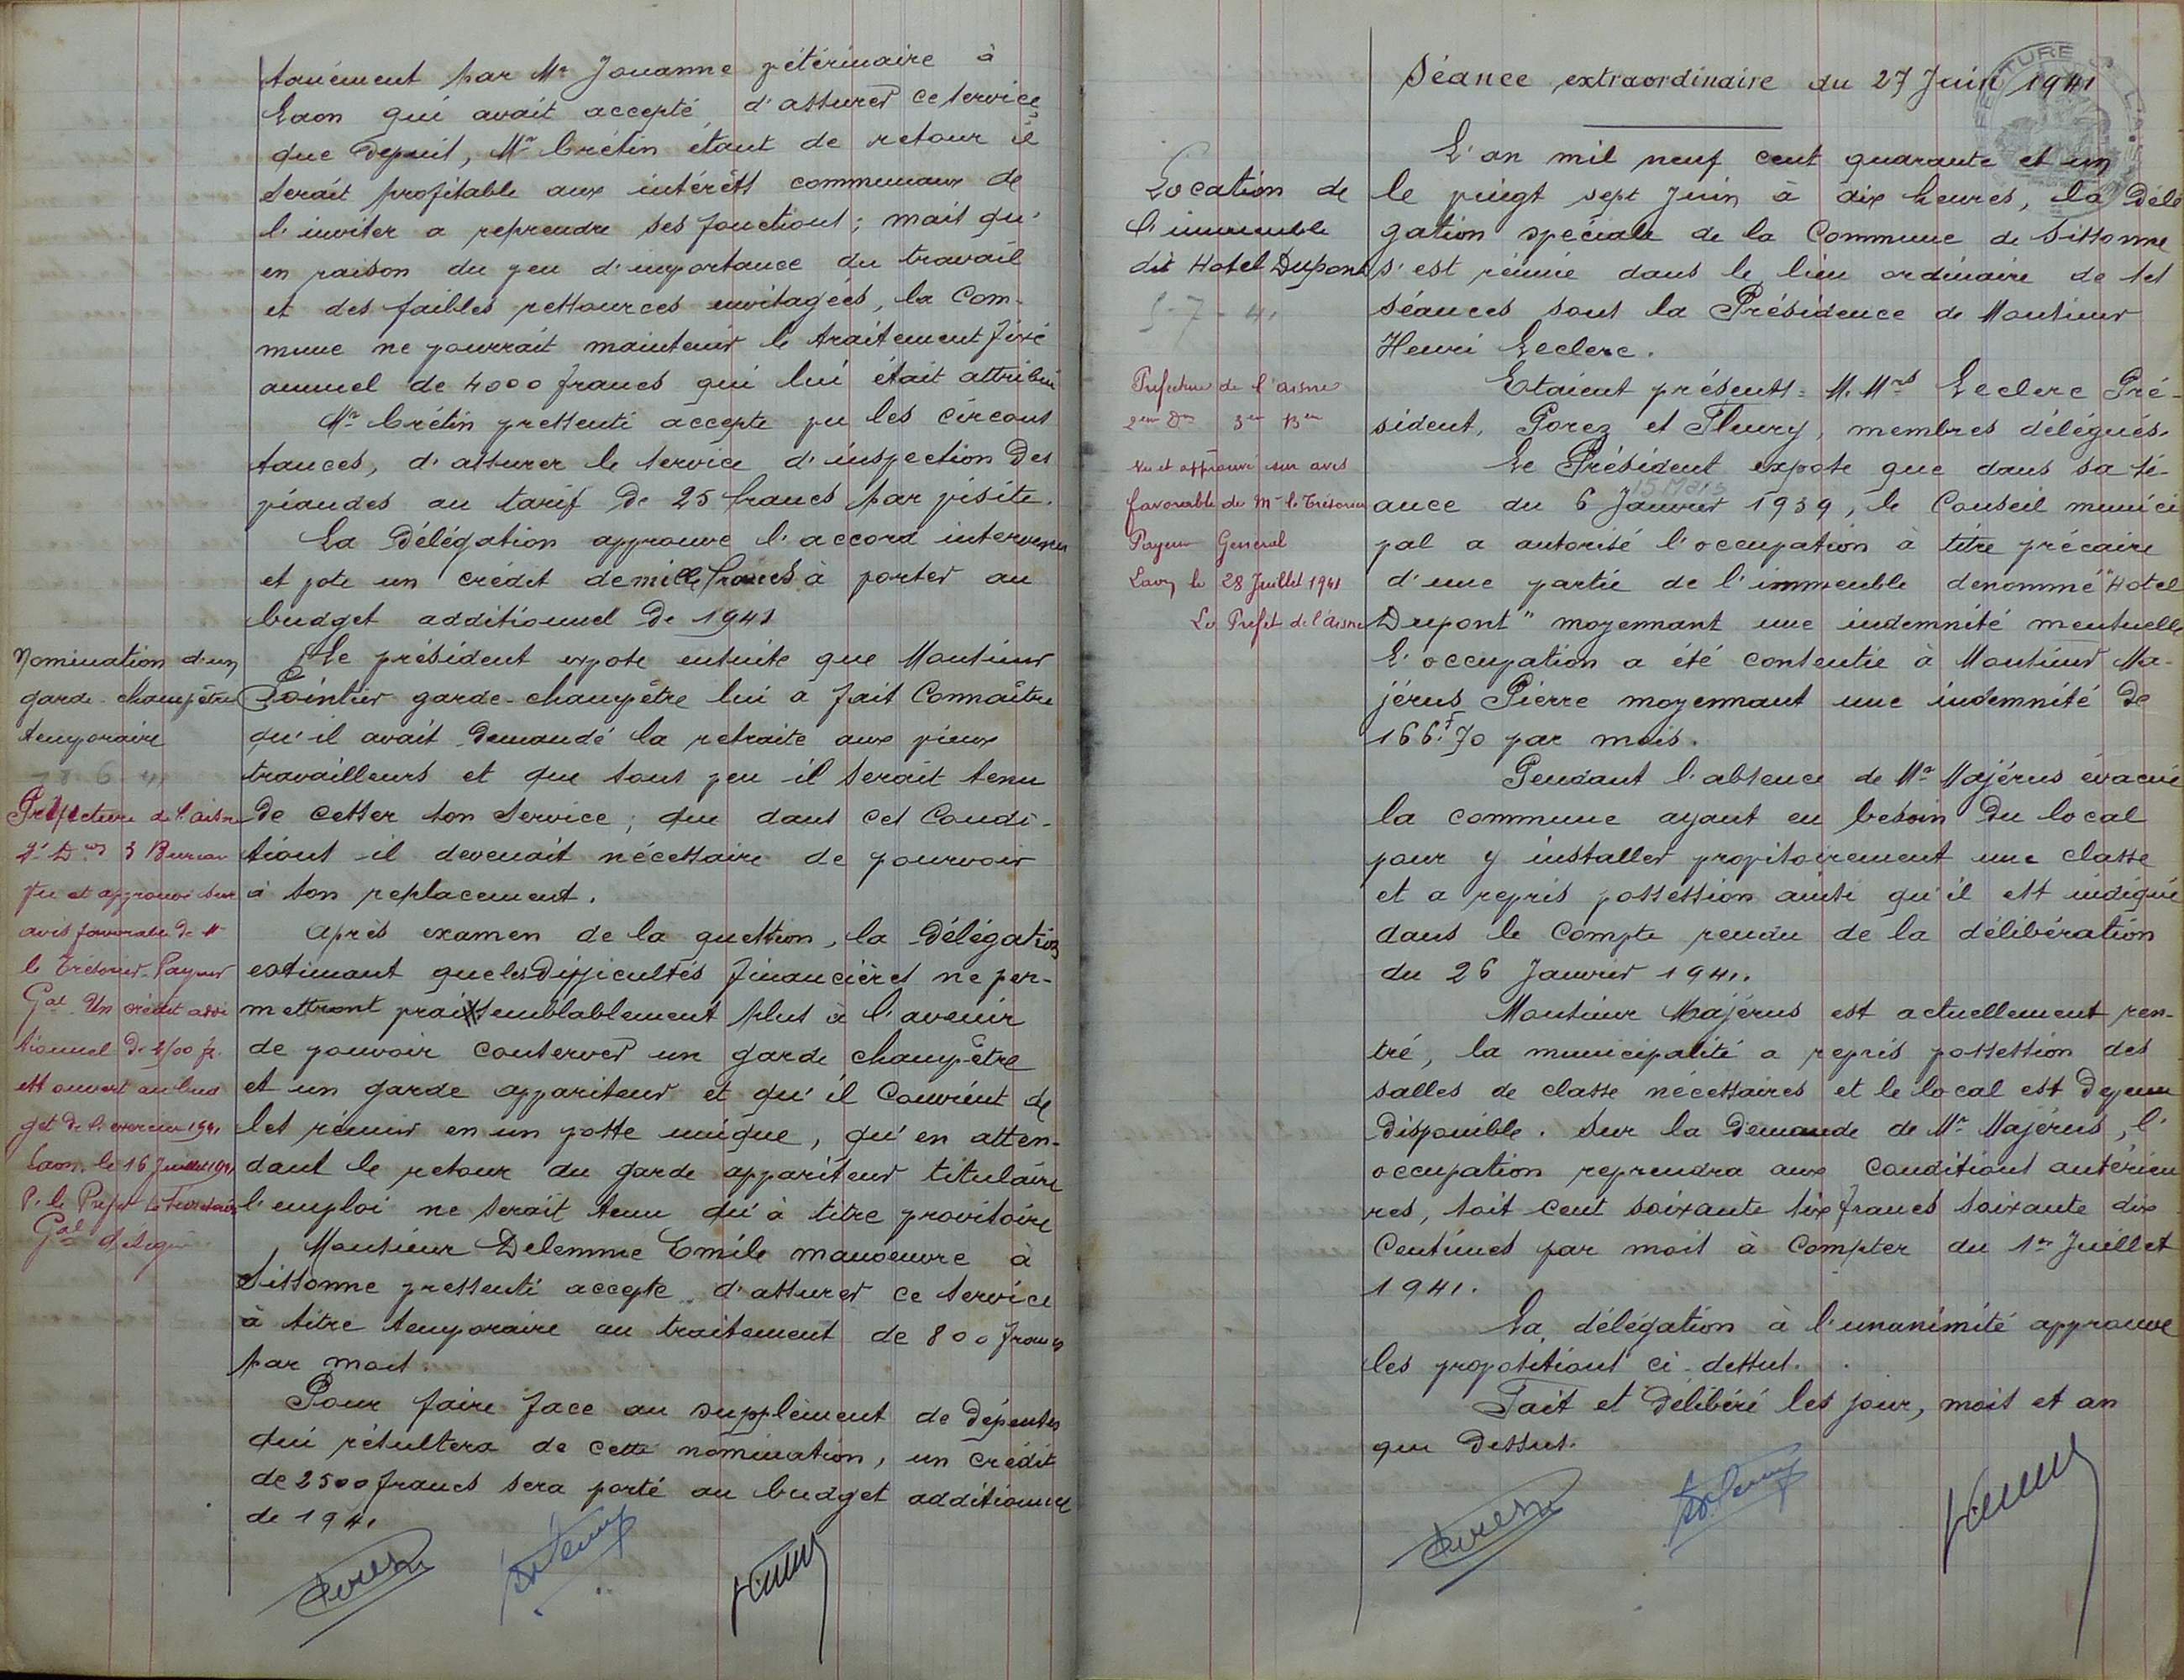 tanément par Mr Jouanne vétérinaire à
Laon qui avait accepté d'assurer ce service
que depuis, Mr Crétin étant de retour il
serait profitable aux intérêts communaux de
l'inviter a reprendre ses fonctions ; mais qu'
en raison du peu d'importance du travail
et des faibles ressources envisagées, la Com-
mune ne pourrait maintenir le traitement fixe
annuel de 4000 francs qui lui était attribué
Mr Crétin pressenti accepte vu les circons
tances, d'assurer le service d'inspection des
viandes au tarif de 25 francs par visite.
La Délégation approuve l'accord intervenu
et vote un crédit de mille francs à porter au
budget additionnel de 1941
Nomination d'un
garde-champêtre
temporaire
Préfecture de l'Aisne
2e Don 3 Bureau
Vu et approuvé sur
avis favorable de Mr
le Trésorier-Payeur
Gal. Un crédit addi
tionnel de 2500 fr.
est ouvert au bud
get de l'exercice 1941
Laon, le 16 Juillet 1941
P. le Préfet Le Secrétaire
Gal délégué
Le président expose ensuite que Monsieur
Pointier garde-champêtre lui a fait connaître
qu'il avait demandé la retraite aux vieux
travailleurs et que sous peu il serait tenu
de cesser son service ; que dans ces condi-
tions il devenait nécessaire de pourvoir
à son replacement.
Après examen de la question, la Délégation
estimant que les difficultés financières ne per-
mettront vraissemblablement plus à l'avenir
de pouvoir conserver un garde champêtre
et un garde appariteur et qu'il convient de
les réunir en un poste unique, qu'en atten-
dant le retour du garde appariteur titulaire
l'emploi ne serait tenu qu'à titre provisoire
Monsieur Delemme Emile manoeuvre à
Sissonne pressenti accepte d'assurer ce service
à titre temporaire au traitement de 800 francs
par mois.
Pour faire face au supplément de dépenses
qui résultera de cette nomination, un crédit
de 2500 francs sera porté au budget additionnel
de 1941
Séance extraordinaire du 27 Juin 1941
Location de
l'immeuble
dit Hotel Dupont
5-7-41
Préfecture de l'Aisne
2eme Don 3eme Beau
Vu et approuvé sur avis
favorable de Mr le Trésorier
Payeur Général
Laon le 28 Juillet 1941
Le Préfet de l'Aisne
L'an mil neuf cent quarante et un
le vingt sept Juin à dix heures, la Délé
gation spéciale de la Commune de Sissonne
s'est réunie dans le lieu ordinaire de ses
séances sous la Présidence de Monsieur
Henri Leclerc.
Etaient présents = M.Mrs Leclerc Pré-
sident, Porez et Fleury, membres délégués.
Le Président expose que dans sa sé-
15 Mars
ance du 6 Janvier 1939, le Conseil munici
pal a autorisé l'occupation à titre précaire
d'une partie de l'immeuble denommé "Hotel
Dupont" moyennant une indemnité mensuelle
L'occupation a été consentie à Monsieur Ma-
jérus Pierre moyennant une indemnité de
166f.70 par mois.
Pendant l'absence de Mr Majérus évacué
la commune ayant eu besoin du local
pour y installer provisoirement une classe
et a repris possession ainsi qu'il est indiqué
dans le Compte rendu de la délibération
du 26 Janvier 1941.
Monsieur Majérus est actuellement ren-
tré, la municipalité a repris possession des
salles de classe nécessaires et le local est devenu
disponible. Sur la demande de Mr Majérus, l'
occupation reprendra aux conditions antérieu
res, soit cent soixante six francs soixante dix
Centimes par mois à compter du 1er Juillet
1941.
La délégation à l'unanimité approuve
les propositions ci-dessus.
Fait et délibéré les jour, mois et an
que dessus.